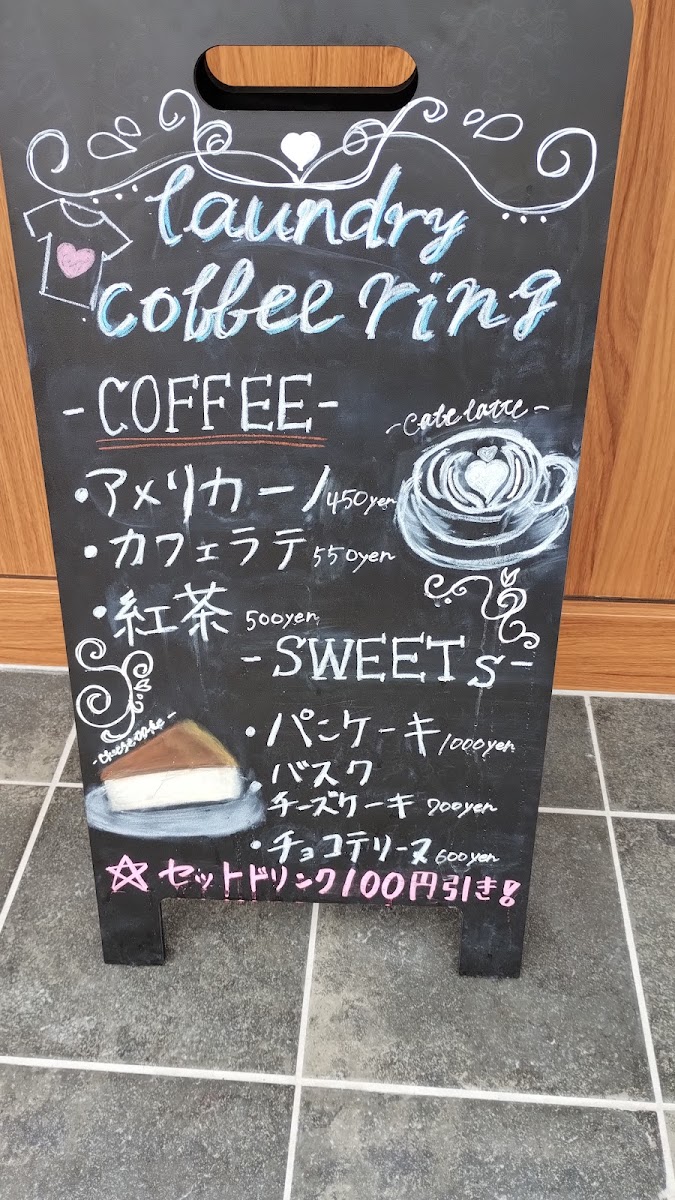 laundry
coffee ring
-COFFEE-
-Cafe latte-
・アメリカーノ 450yen
・カフェラテ 550yen
・紅茶 500yen
-SWEETs-
-cheese cake-
・パンケーキ 1000yen
・バスク
チーズケーキ 700yen
・チョコテリーヌ 600yen
☆セットドリンク100円引き!